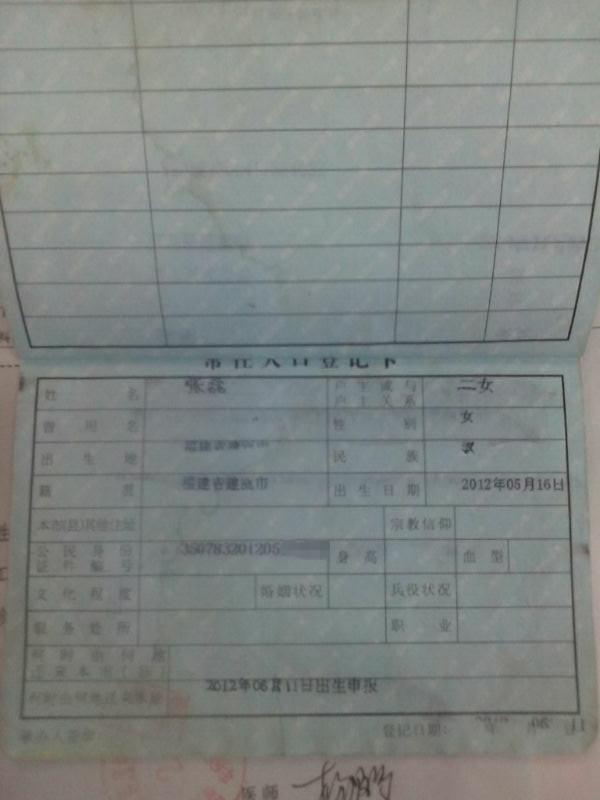 常住人口登记卡
姓名 张蕊 户主或与户主关系 二女
曾用名 性别 女
出生地 福建省建瓯市 民族 汉
籍贯 福建省建瓯市 出生日期 2012年05月16日
本市(县)其他住址 宗教信仰
公民身份证件编号 350783201205 身高 血型
文化程度 婚姻状况 兵役状况
服务处所 职业
何时由何地迁来本市(县)
何时由何地迁来本址 2012年06月11日出生申报
承办人签章 登记日期:
医师